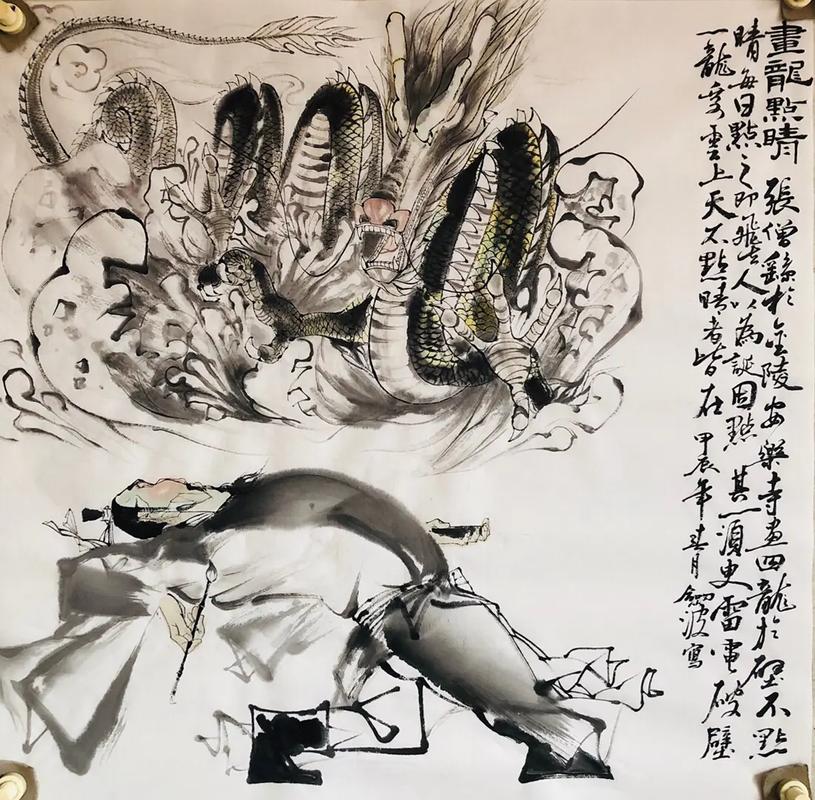 畫龍點睛 張僧繇於金陵安樂寺畫四龍於壁不點
睛每曰點之即飛去人以為誕因點其一須臾雷電破壁
一龍乘雲上天不點睛者皆在 甲辰年春月劍波寫